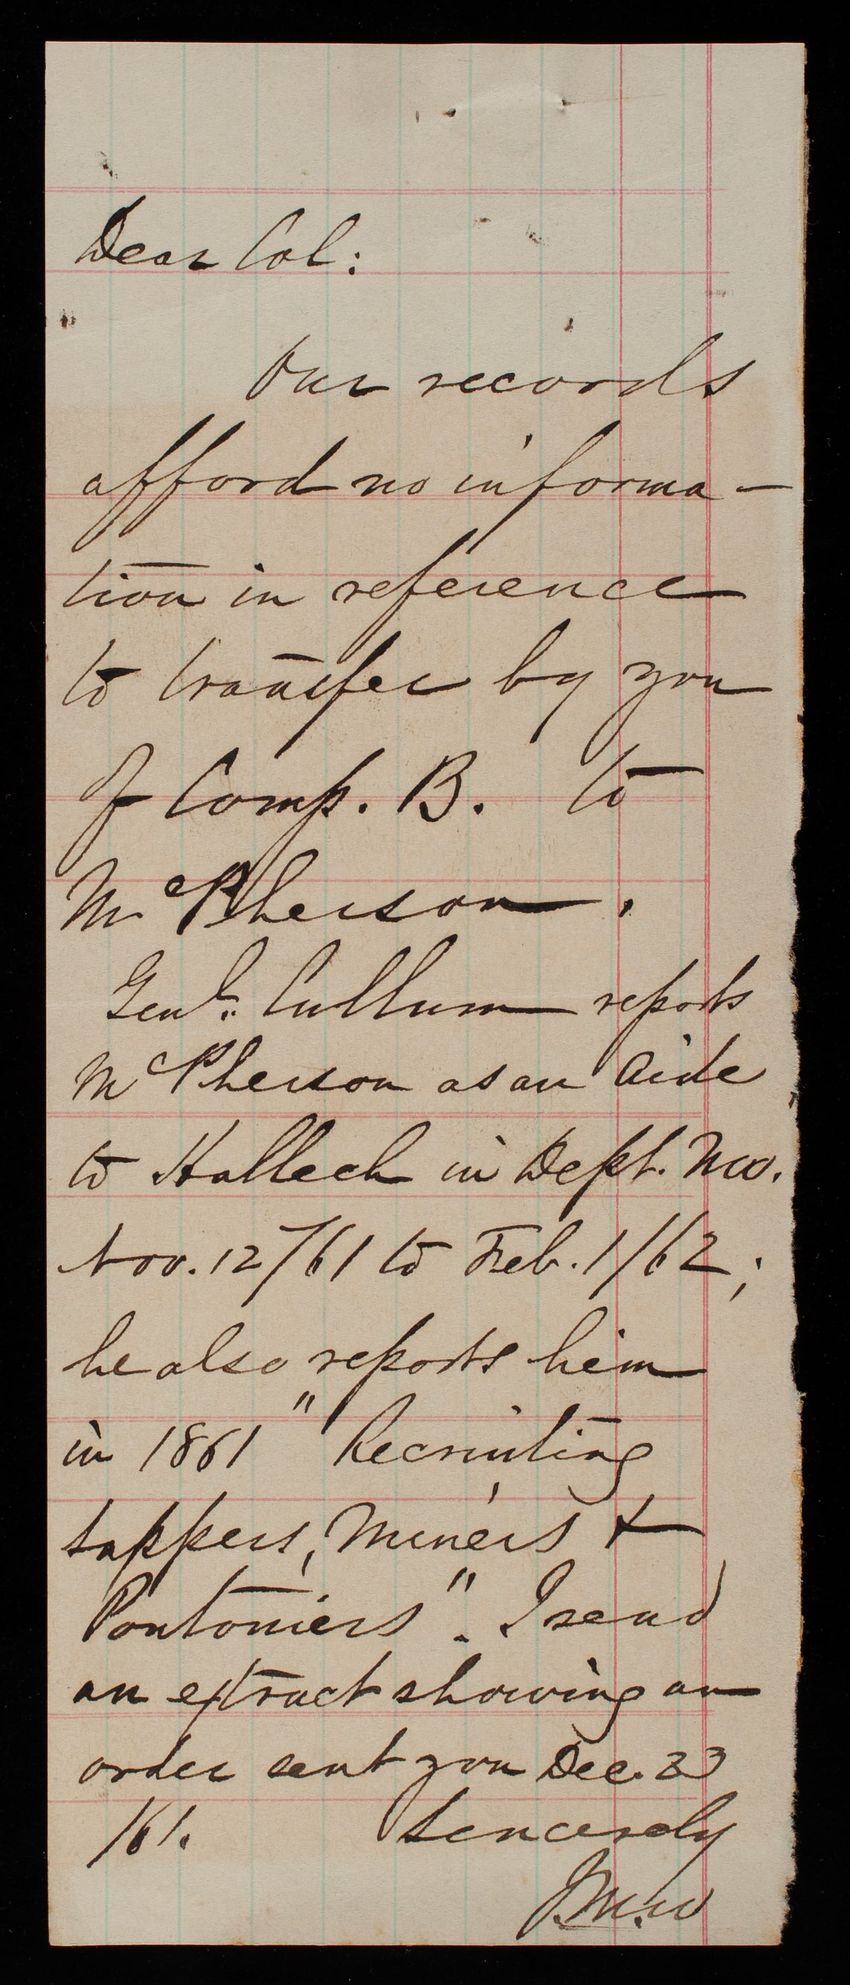 Dear Col:
Our records
afford no informa-
tion in reference
to transfer by you
of Comp. B. to
McPherson.
Genl. Cullum reports
McPherson as an Aide
to Halleck in Dept. Mo.
Nov. 12/61 to Feb. 1/62;
he also reports him
in 1861 "Recruiting
Sappers, Miners &
Pontoniers". I send
an extract showing an
order sent you Dec. 23
/61. Sincerely
J.M.W